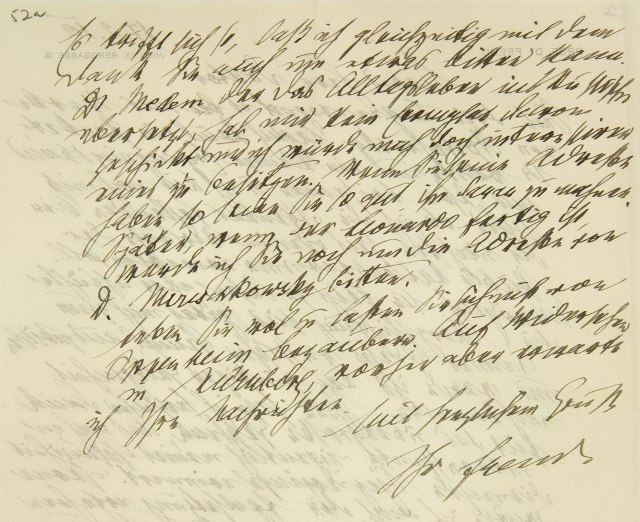 52a
Es trifft sich so, daß ich gleichzeitig mit dem
Dank Sie auch um etwas bitten kann.
Dr Medem der das Alltagsleben ins Russische
übersetzt, hat mir kein Exemplar davon
geschickt und ich würde mich doch interessieren
eines zu besitzen. Wenn Sie seine Adresse
haben so seien Sie so gut ihn daran zu mahnen.
Später, wenn der Leonardo fertig ist
werde ich Sie noch um die Adresse von
D. Mereschkowsky bitten.
Leben Sie wol u lassen Sie sich von
Oppenheim bezaubern. Auf Wiedersehen
in Nürnberg, vorher aber erwarte
ich Ihre Nachrichten.
Mit herzlichem Gruß
Ihr Freud